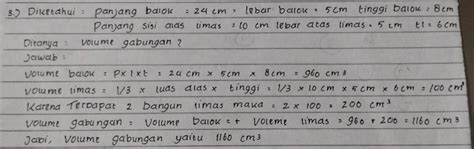 3.) Diketahui : panjang balok = 24 cm = lebar balok = 5cm tinggi balok = 8cm
Panjang sisi alas limas = 10 cm lebar alas limas = 5 cm t1 = 6cm
Ditanya : Volume gabungan ?
Jawab :
Volume balok = P x l x t = 24 cm x 5 cm x 8 cm = 960 cm3
Volume limas = 1/3 x luas alas x tinggi = 1/3 x 10 cm x 5 cm x 6 cm = 100 cm3
Karena Terdapat 2 bangun limas maka = 2 x 100 = 200 cm3
Volume gabungan = Volume balok = + Voleme limas = 960 + 200 = 1160 cm3
Jadi, Volume gabungan yaitu 1160 cm3